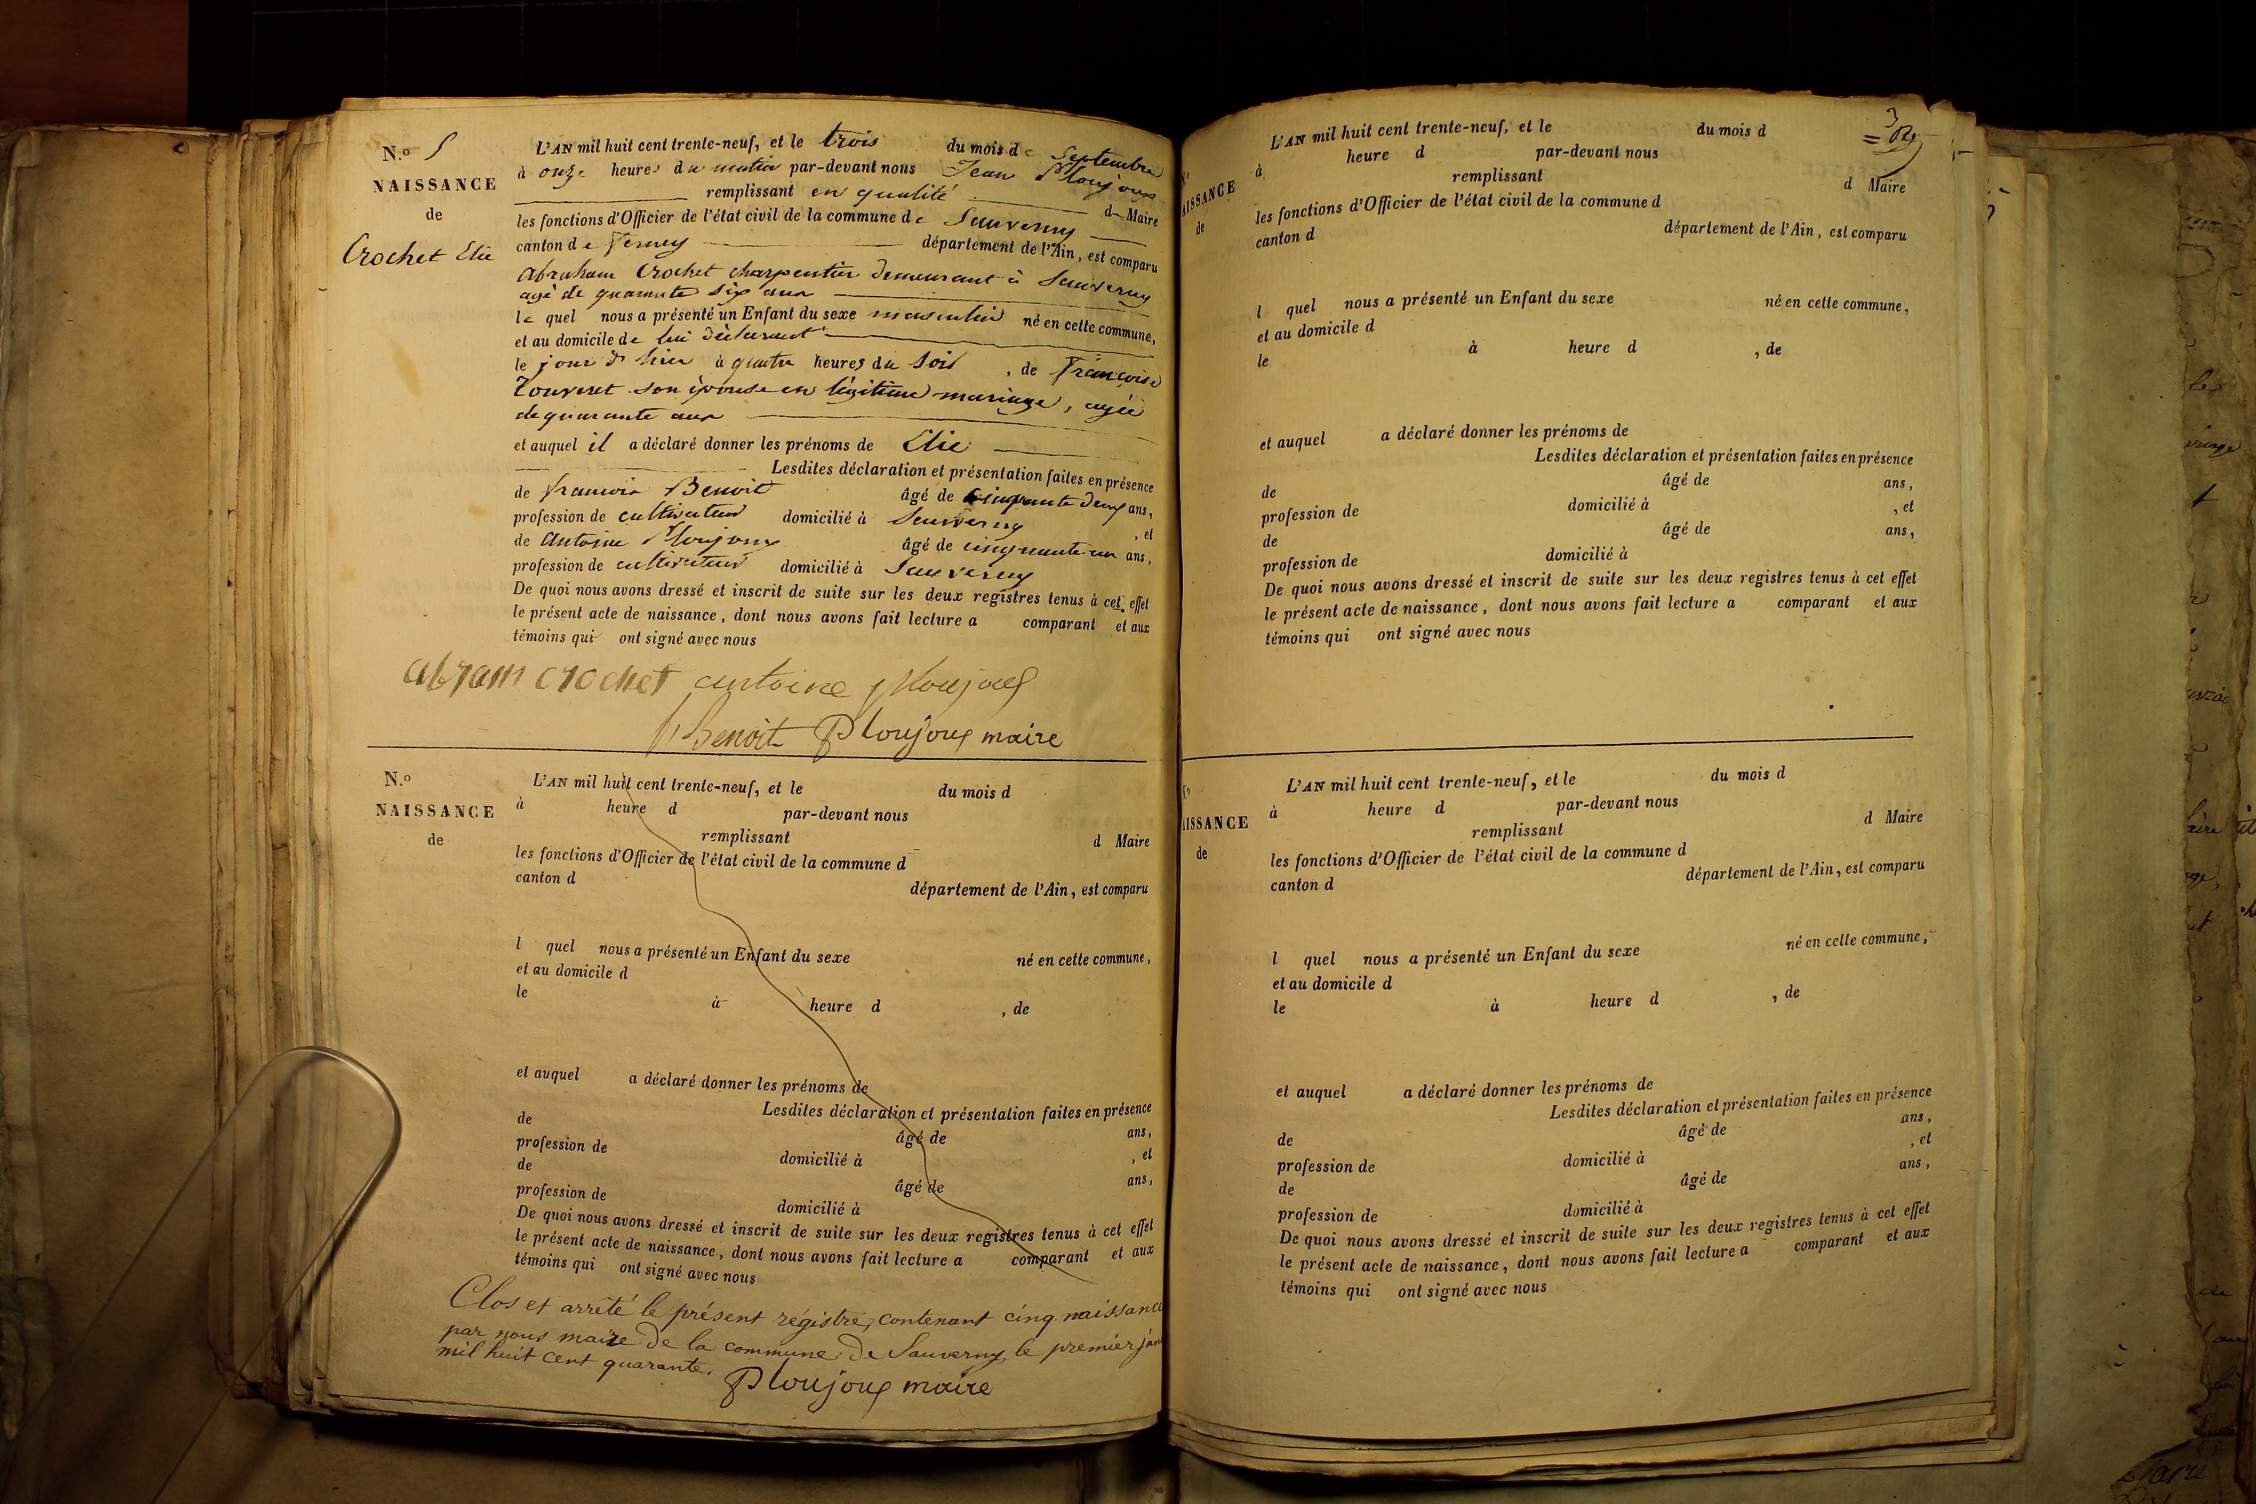 N.º 5
NAISSANCE
de
Crochet Elie
L'AN mil huit cent trente-neuf, et le trois du mois de Septembre
à onze heures du matin par-devant nous Jean Ploujoux
remplissant en qualité de Maire
les fonctions d'Officier de l'état civil de la commune de Sauverny
canton de Ferney département de l'Ain, est comparu
Abraham Crochet charpentier demeurant à Sauverny
agé de quarante six ans
le quel nous a présenté un Enfant du sexe masculin né en cette commune,
et au domicile de lui déclarant
le jour d'hier à quatre heures du soir, de Françoise
Touveret son épouse en légitime mariage, agée
de quarante ans
et auquel il a déclaré donner les prénoms de Elie
Lesdites déclaration et présentation faites en présence
de francois Benoit âgé de cinquante deux ans,
profession de cultivateur domicilié à Sauverny, et
de Antoine Ploujoux âgé de cinquante un ans,
profession de cultivateur domicilié à Sauverny
De quoi nous avons dressé et inscrit de suite sur les deux registres tenus à cet effet
le présent acte de naissance, dont nous avons fait lecture a comparant et aux
témoins qui ont signé avec nous
abram crochet antoine Ploujoux
Benoit Ploujoux maire
N.º
NAISSANCE
de
L'AN mil huit cent trente-neuf, et le du mois d
à heure d par-devant nous
remplissant d Maire
les fonctions d'Officier de l'état civil de la commune d
canton d département de l'Ain, est comparu
l quel nous a présenté un Enfant du sexe né en cette commune,
et au domicile d
le à heure d , de
et auquel a déclaré donner les prénoms de
Lesdites déclaration et présentation faites en présence
de âgé de ans,
profession de domicilié à , et
de âgé de ans,
profession de domicilié à
De quoi nous avons dressé et inscrit de suite sur les deux registres tenus à cet effet
le présent acte de naissance, dont nous avons fait lecture a comparant et aux
témoins qui ont signé avec nous
Clos et arrêté le présent régistre, contenant cinq naissance
par nous maire de la commune de Sauverny, le premier jan
mil huit cent quarante.
Ploujoux maire
AISSANCE
de
L'AN mil huit cent trente-neuf, et le du mois d
à heure d par-devant nous
remplissant d Maire
les fonctions d'Officier de l'état civil de la commune d
canton d département de l'Ain, est comparu
l quel nous a présenté un Enfant du sexe né en cette commune,
et au domicile d
le à heure d , de
et auquel a déclaré donner les prénoms de
Lesdites déclaration et présentation faites en présence
de âgé de ans,
profession de domicilié à , et
de âgé de ans,
profession de domicilié à
De quoi nous avons dressé et inscrit de suite sur les deux registres tenus à cet effet
le présent acte de naissance, dont nous avons fait lecture a comparant et aux
témoins qui ont signé avec nous
AISSANCE
de
L'AN mil huit cent trente-neuf, et le du mois d
à heure d par-devant nous
remplissant d Maire
les fonctions d'Officier de l'état civil de la commune d
canton d département de l'Ain, est comparu
l quel nous a présenté un Enfant du sexe né en cette commune,
et au domicile d
le à heure d , de
et auquel a déclaré donner les prénoms de
Lesdites déclaration et présentation faites en présence
de âgé de ans,
profession de domicilié à , et
de âgé de ans,
profession de domicilié à
De quoi nous avons dressé et inscrit de suite sur les deux registres tenus à cet effet
le présent acte de naissance, dont nous avons fait lecture a comparant et aux
témoins qui ont signé avec nous